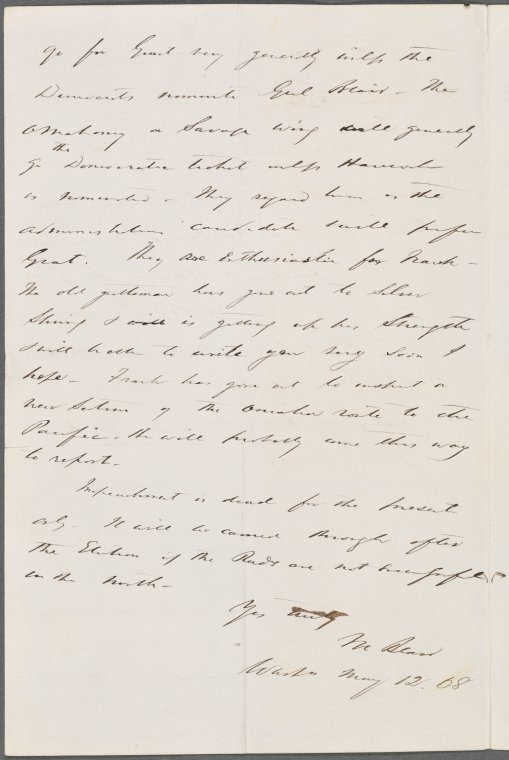 go for Grant very generally unless the
Democrats nominate Genl Blair - The
O Mahony or Savage wing will generally
go the Democratic ticket unless Hancock
is nominated - They regard him as the
administration candidate & will prefer
Grant. They are Enthusiastic for Frank -
The old gentleman has gone out to Silver
Spring & is getting up his Strength
& will be able to write you very soon I
hope - Frank has gone out to inspect a
new Section of the Omaha route to the
Pacific. He will probably come this way
to report -
Impeachment is dead for the present
only. It will be carried through after
the Election if the Rads are not
in the north -
Yrs truly
M Blair
Washn May 12. 68